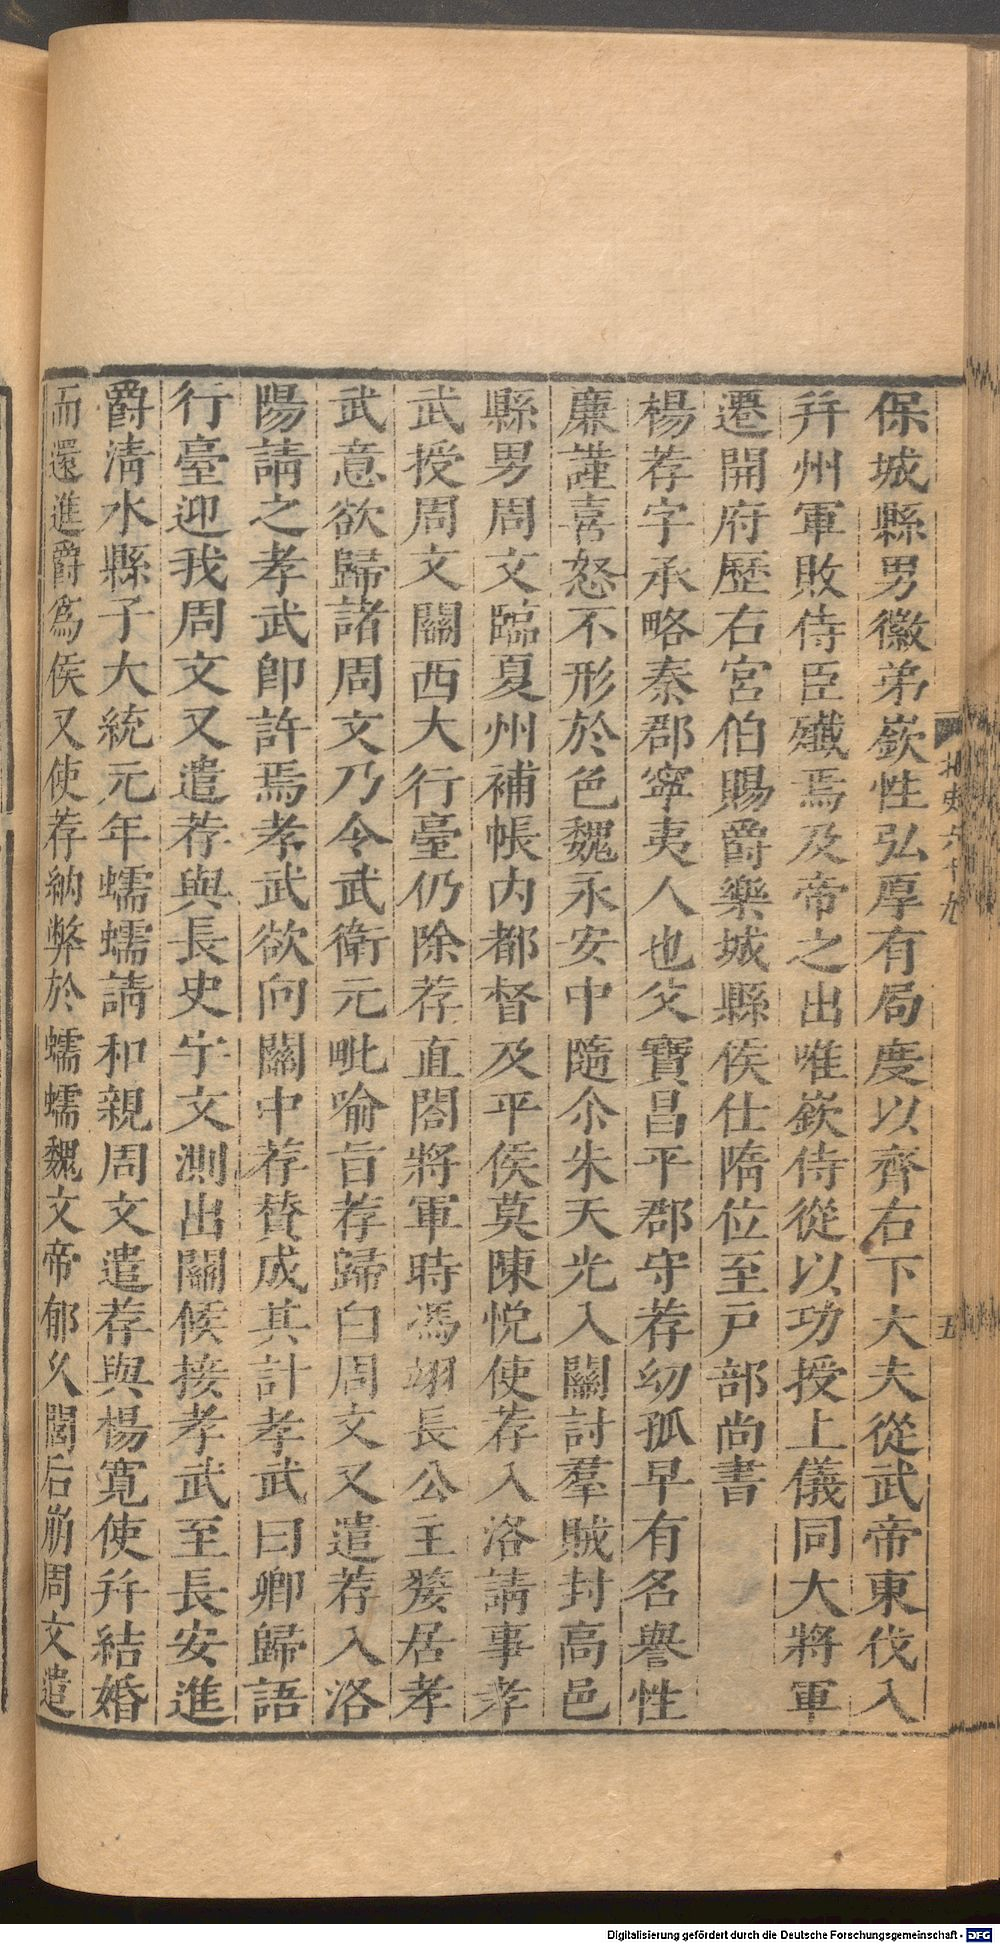 保城縣男徽弟嶔性弘厚有局度以齊右下大夫從武帝東伐入
幷州軍敗侍臣殱焉及帝之出唯嶔侍從以功授上儀同大將軍
遷開府歷右宮伯賜爵樂城縣侯仕隋位至戸部尚書
楊荐字承略秦郡寧夷人也父寶昌平郡守荐幼孤早有名譽性
廉謹喜怒不形於色魏永安中隨尒朱天光入關討羣賊封高邑
縣男周文臨夏州補帳內都督及平侯莫陳悅使荐入洛請事孝
武授周文關西大行臺仍除荐直閤將軍時馮翊長公主嫠居孝
武意欲歸諸周文乃令武衛元毗喻旨荐歸白周文又遣荐入洛
陽請之孝武卽許焉孝武欲向關中荐賛成其計孝武曰卿歸語
行臺迎我周文又遣荐與長史宇文測出關候接孝武至長安進
爵清水縣子大統元年蠕蠕請和親周文遣荐與楊寛使幷結婚
而還進爵爲侯又使荐納弊於蠕蠕魏文帝郁久閭后崩周文遣
北史六十九
五
Digitalisierung gefördert durch die Deutsche Forschungsgemeinschaft - DFG